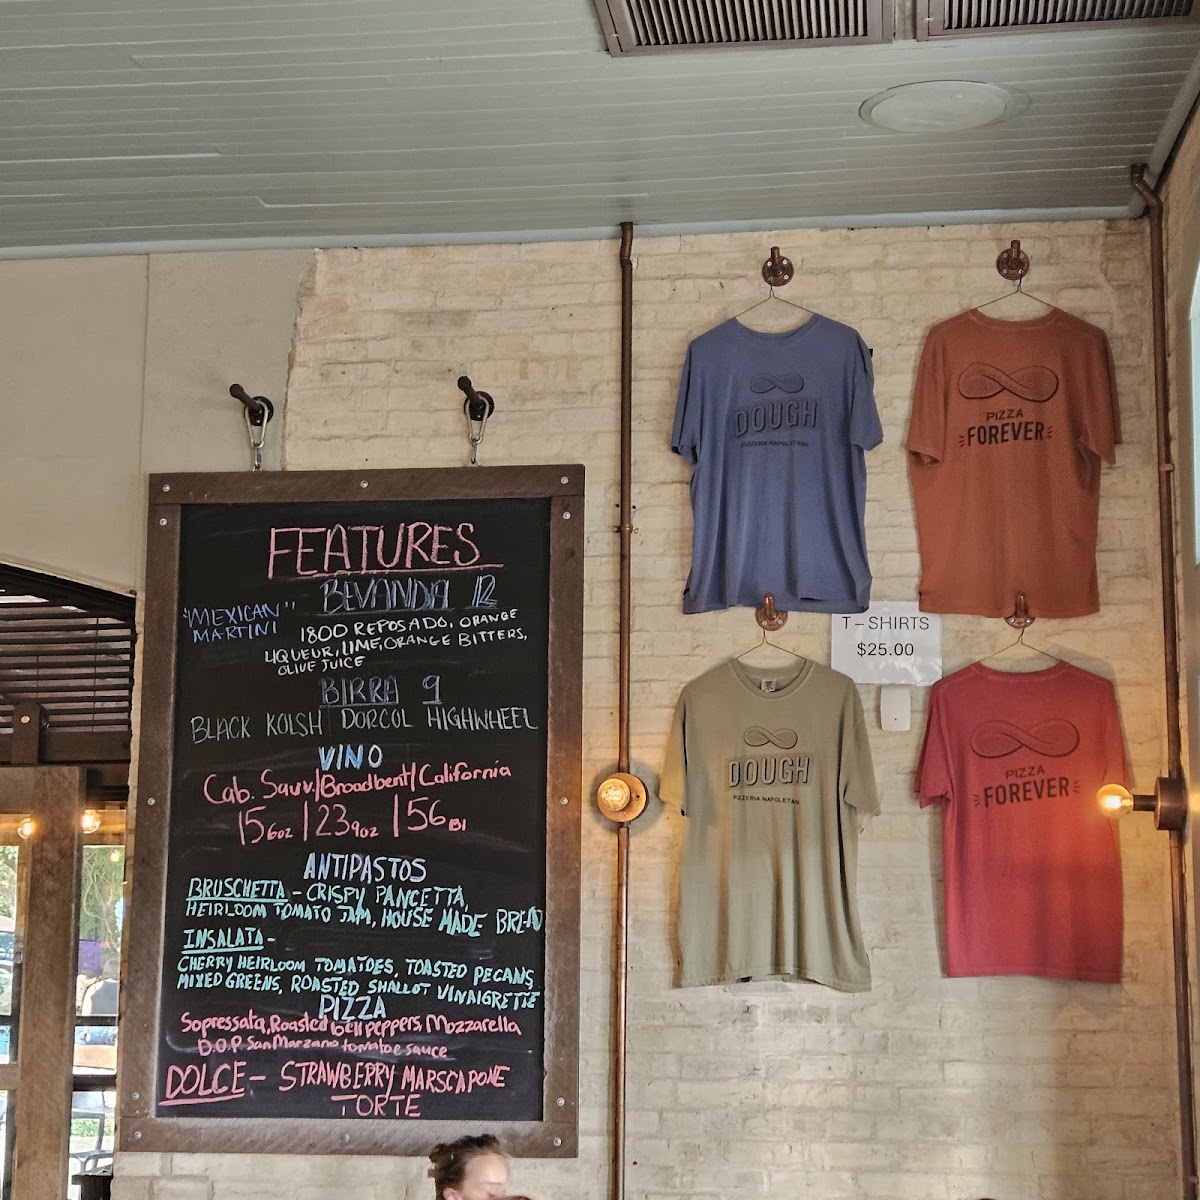 FEATURES
BEVANDA 12
"MEXICAN"
MARTINI
1800 REPOSADO, ORANGE
LIQUEUR, LIME, ORANGE BITTERS,
OLIVE JUICE
BIRRA 9
BLACK KOLSH DORCOL HIGHWHEEL
VINO
Cab. Sauv./Broadbent/California
15 6oz | 23 9oz | 56 Btl
ANTIPASTOS
BRUSCHETTA - CRISPY PANCETTA,
HEIRLOOM TOMATO JAM, HOUSE MADE BREAD
INSALATA -
CHERRY HEIRLOOM TOMATOES, TOASTED PECANS,
MIXED GREENS, ROASTED SHALLOT VINAIGRETTE
PIZZA
Sopressata, Roasted bell peppers, Mozzarella
D.O.P. San Marzano tomatoe sauce
DOLCE - STRAWBERRY MARSCAPONE
TORTE
DOUGH
PIZZERIA NAPOLETANA
PIZZA
FOREVER
T-SHIRTS
$25.00
DOUGH
PIZZERIA NAPOLETAN
PIZZA
FOREVER